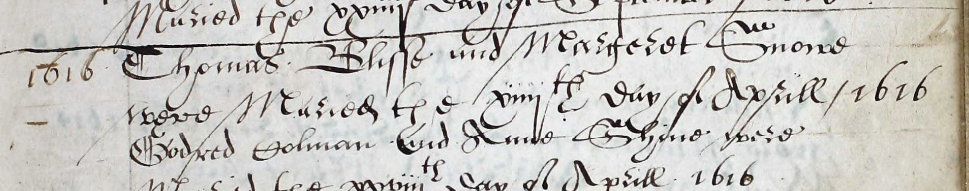 Maried the xxiiij day of September
1616 Thomas Blisse and Margeret Snowe
were Maried the xiiij th day of Aprill / 1616
Godred Colman and Anne Shine were
Maried the xxviij th day of Aprill 1616